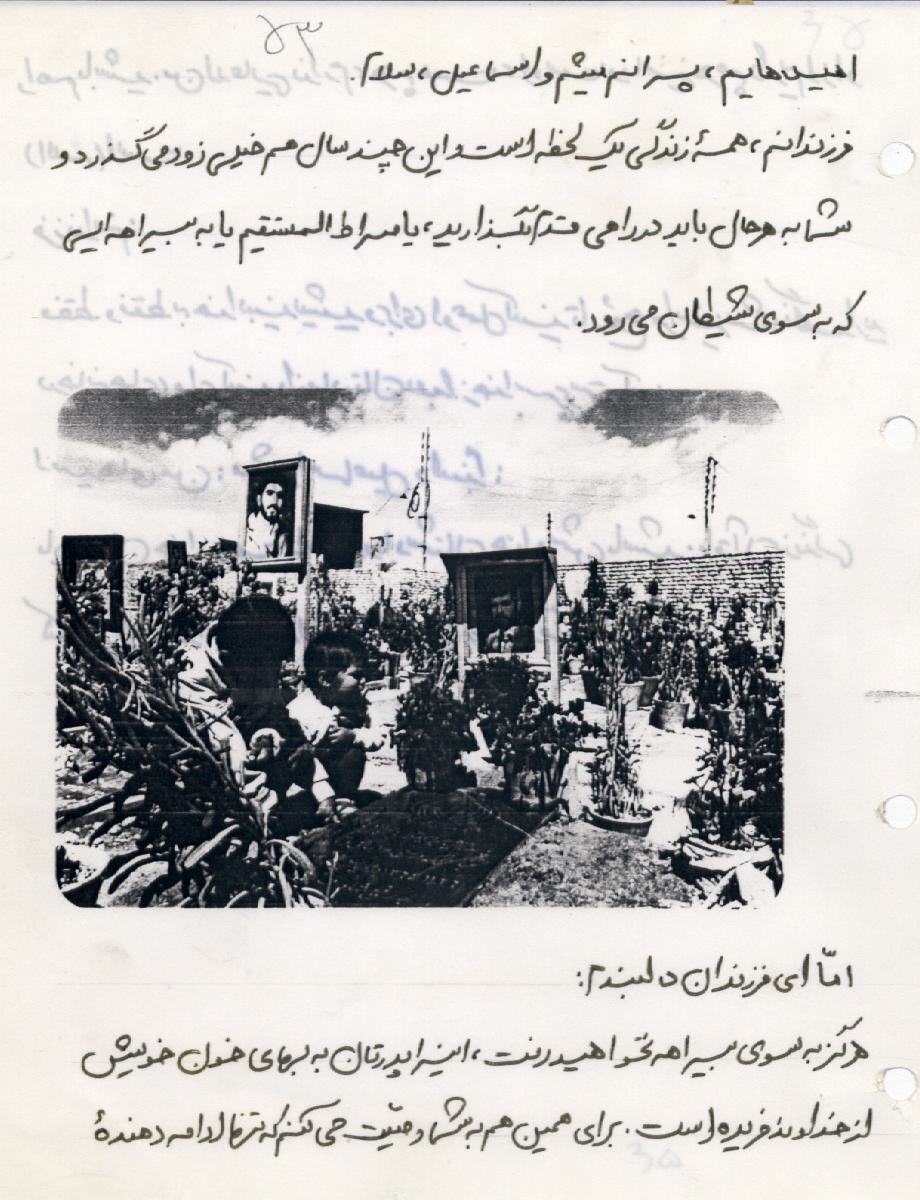 ۷۳
امیدهایم، پسرانم میثم و اسماعیل، سلام
فرزندانم، همهٔ زندگی یک لحظه است و این چند سال هم خیلی زود می گذرد و
شما به هرحال باید در راهی قدم بگذارید، یا صراط المستقیم یا به بیراهه ایی
که به سوی شیطان می رود.
امّا ای فرزندان دلبندم:
هرگز به سوی بیراهه نخواهید رفت، این را پدرتان به بهای خون خویش
از خداوند خریده است. برای همین هم به شما وصیّت می کنم که تنها ادامه دهندهٔ